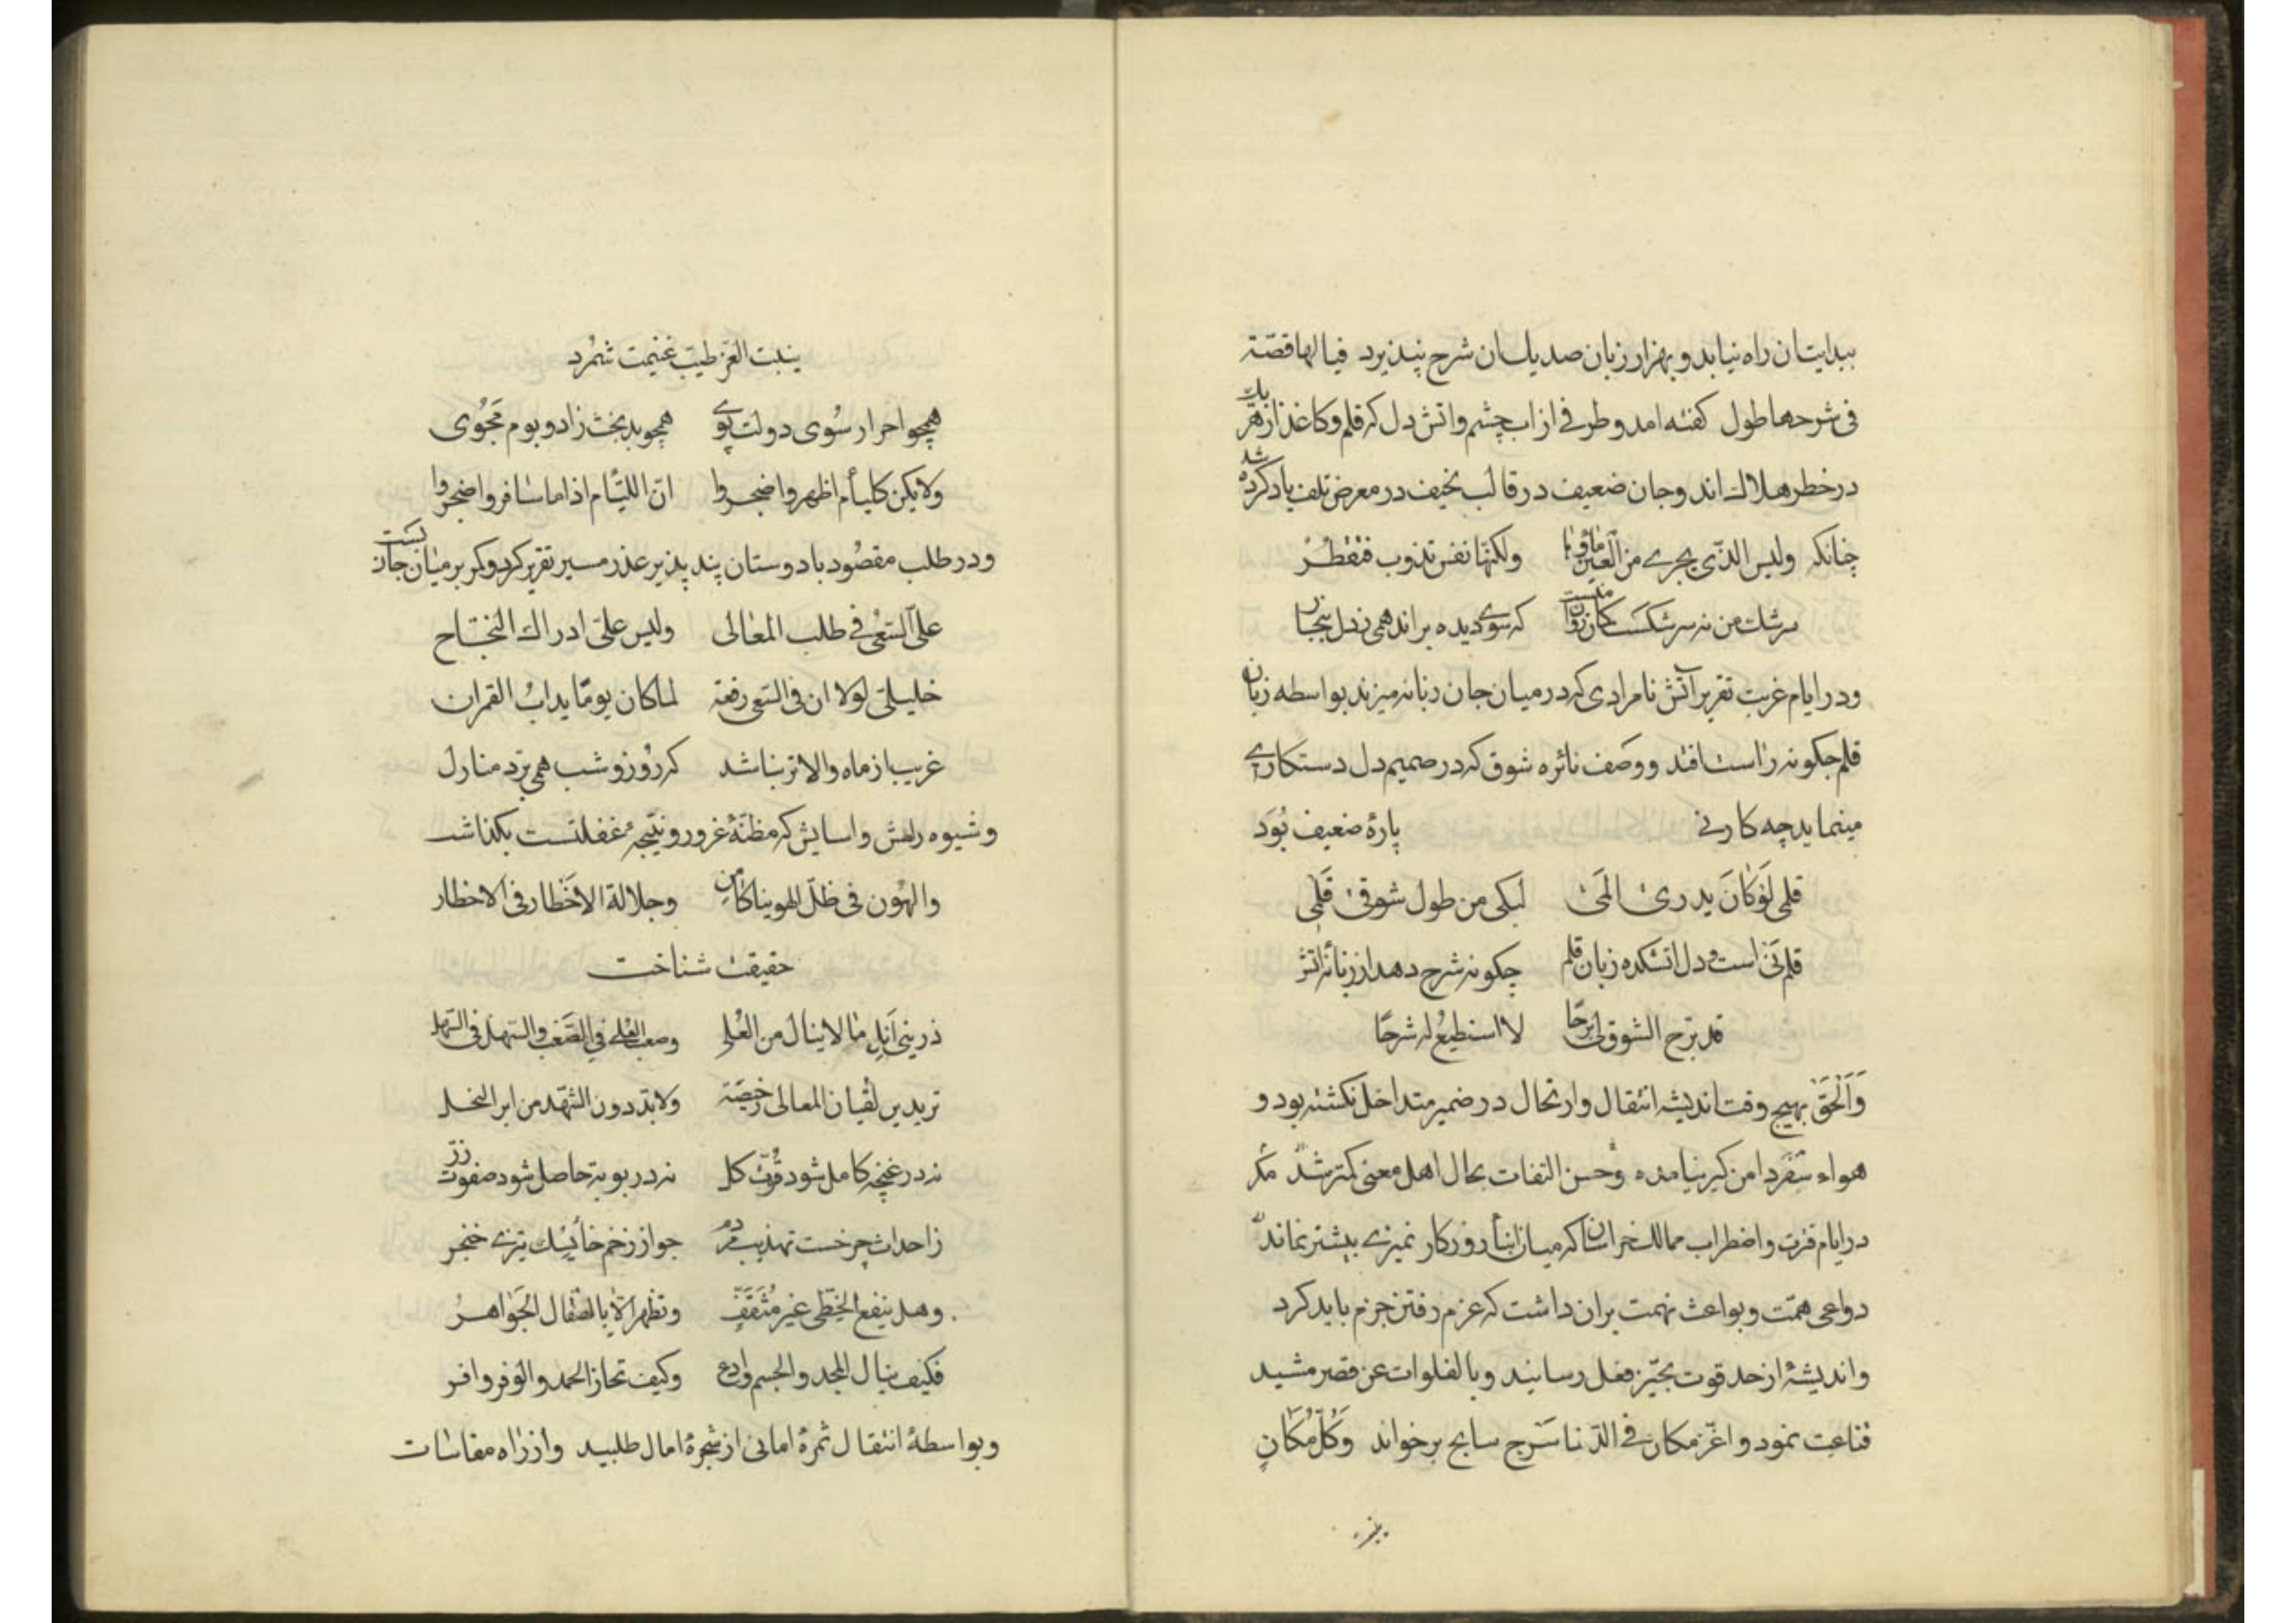 ببدایتان راه نیابد و بهزار زبان صد یک ان شرح نپذیرد فیا لها قصّة
فی شرحها طول کفته امد و طرفی از اب چشم و اتش دل که قلم و کاغذ از هر یک
در خطر هلاک اند و جان ضعیف در قالب نحیف در معرض تلف یاد کرده شد
چنانکه ولیس الذی یجری من العین ماؤها ولکنّها نفس تذوب فتقطُرُ
سرشک من نه سرشکست کان روان منست که سوی دیده براند همی ز دل بیجار
و در ایام غربت تقریر آتش نامرادی که در میان جان زبانه میزند بواسطه زبان
قلم جکونه راست افتد و وصف نائره شوق که در صمیم دل دستکاری
مینماید چه کار نی پارهٔ ضعیف بُوَد
قلمی لَوکَانَ یدری المَی لبکی من طول شوقی قَلَمی
قلم نَی است و دل اتشکده زبان قلم جکونه شرح دهد از زبانهٔ اتش
قد برّح الشوق لی برحًا لا استطیعُ له شرحًا
وَاَلحَقّ بهیج وقت اندیشه انتقال و ارتحال در ضمیر متداخل نکشته بود و
هواء سَفَر دامن کیر نیامده و حسن التفات بحال اهل معنی کمتر شد مکر
در ایام فترت و اضطراب ممالک خراسان که میان ابنأ روزکار تمیزی بیشتر نماند
دواعی همّت و بواعث نهمت بران داشت که عزم رفتن جزم باید کرد
و اندیشهٔ از حد قوت بحیّز فعل رسانید و بالفلوات عن قصر مشید
قناعت نمود و اعَزّ مکان فی الدّنا سَرج سابح برخواند وَکُلُّ مَکَانٍ
ینبت
ینبت العَزّ طیّب غنیمت شمُرد
همچو احرار سُوی دولت پوی همچو بدبخت زاد و بوم مَجُوی
ولا یکن کلیأم اظهروا ضجروا انّ اللیّام اذا ما سافروا ضجروا
و در طلب مقصُود با دوستان پند پذیر عذر مسیر تقریر کرد و کمر بر میان جان بست
علیّ السّعی فی طلب المعالی ولیس علیّ ادراک النجاح
خلیلیّ لولا ان فی السّعی رفعة لما کان یومًا یدابُ القمران
غریب از ماه والاتر نباشد که روز و شب همی برّد منازل
و شیوه رامش و اسایش که مظنّهٔ غرور و نتیجهٔ غفلتست بکذاشت
والهُون فی ظلّ الهوینا کامن وجلالة الاخطار فی الاخطار
حقیقت شناخت
ذرینی اَنَل ما لا ینال من العُلی وصعب العُلی فی الصَّعب والسّهل فی السّهل
تریدین لقیان المعالی رخیصَة ولا بدّ دون الشّهد من ابر النحل
نه در غنچه کامل شود قوّت کل نه در بوته حاصل شود صفوت زر
ز احداث چرخست تهذیب مردم جو از زخم خائیسک تیزی خنجر
وهل ینفع الخطّی غیر مُثَقَّفٍ وتظهر الاّ بالصّقال الجَواهرُ
فکیف ینال المجد والجسم وادع وکیف تحاز الحمد والوفر وافر
و بواسطهٔ انتقال ثمرهٔ امانی از شجرهٔ امال طلبید و از راه مقاسات